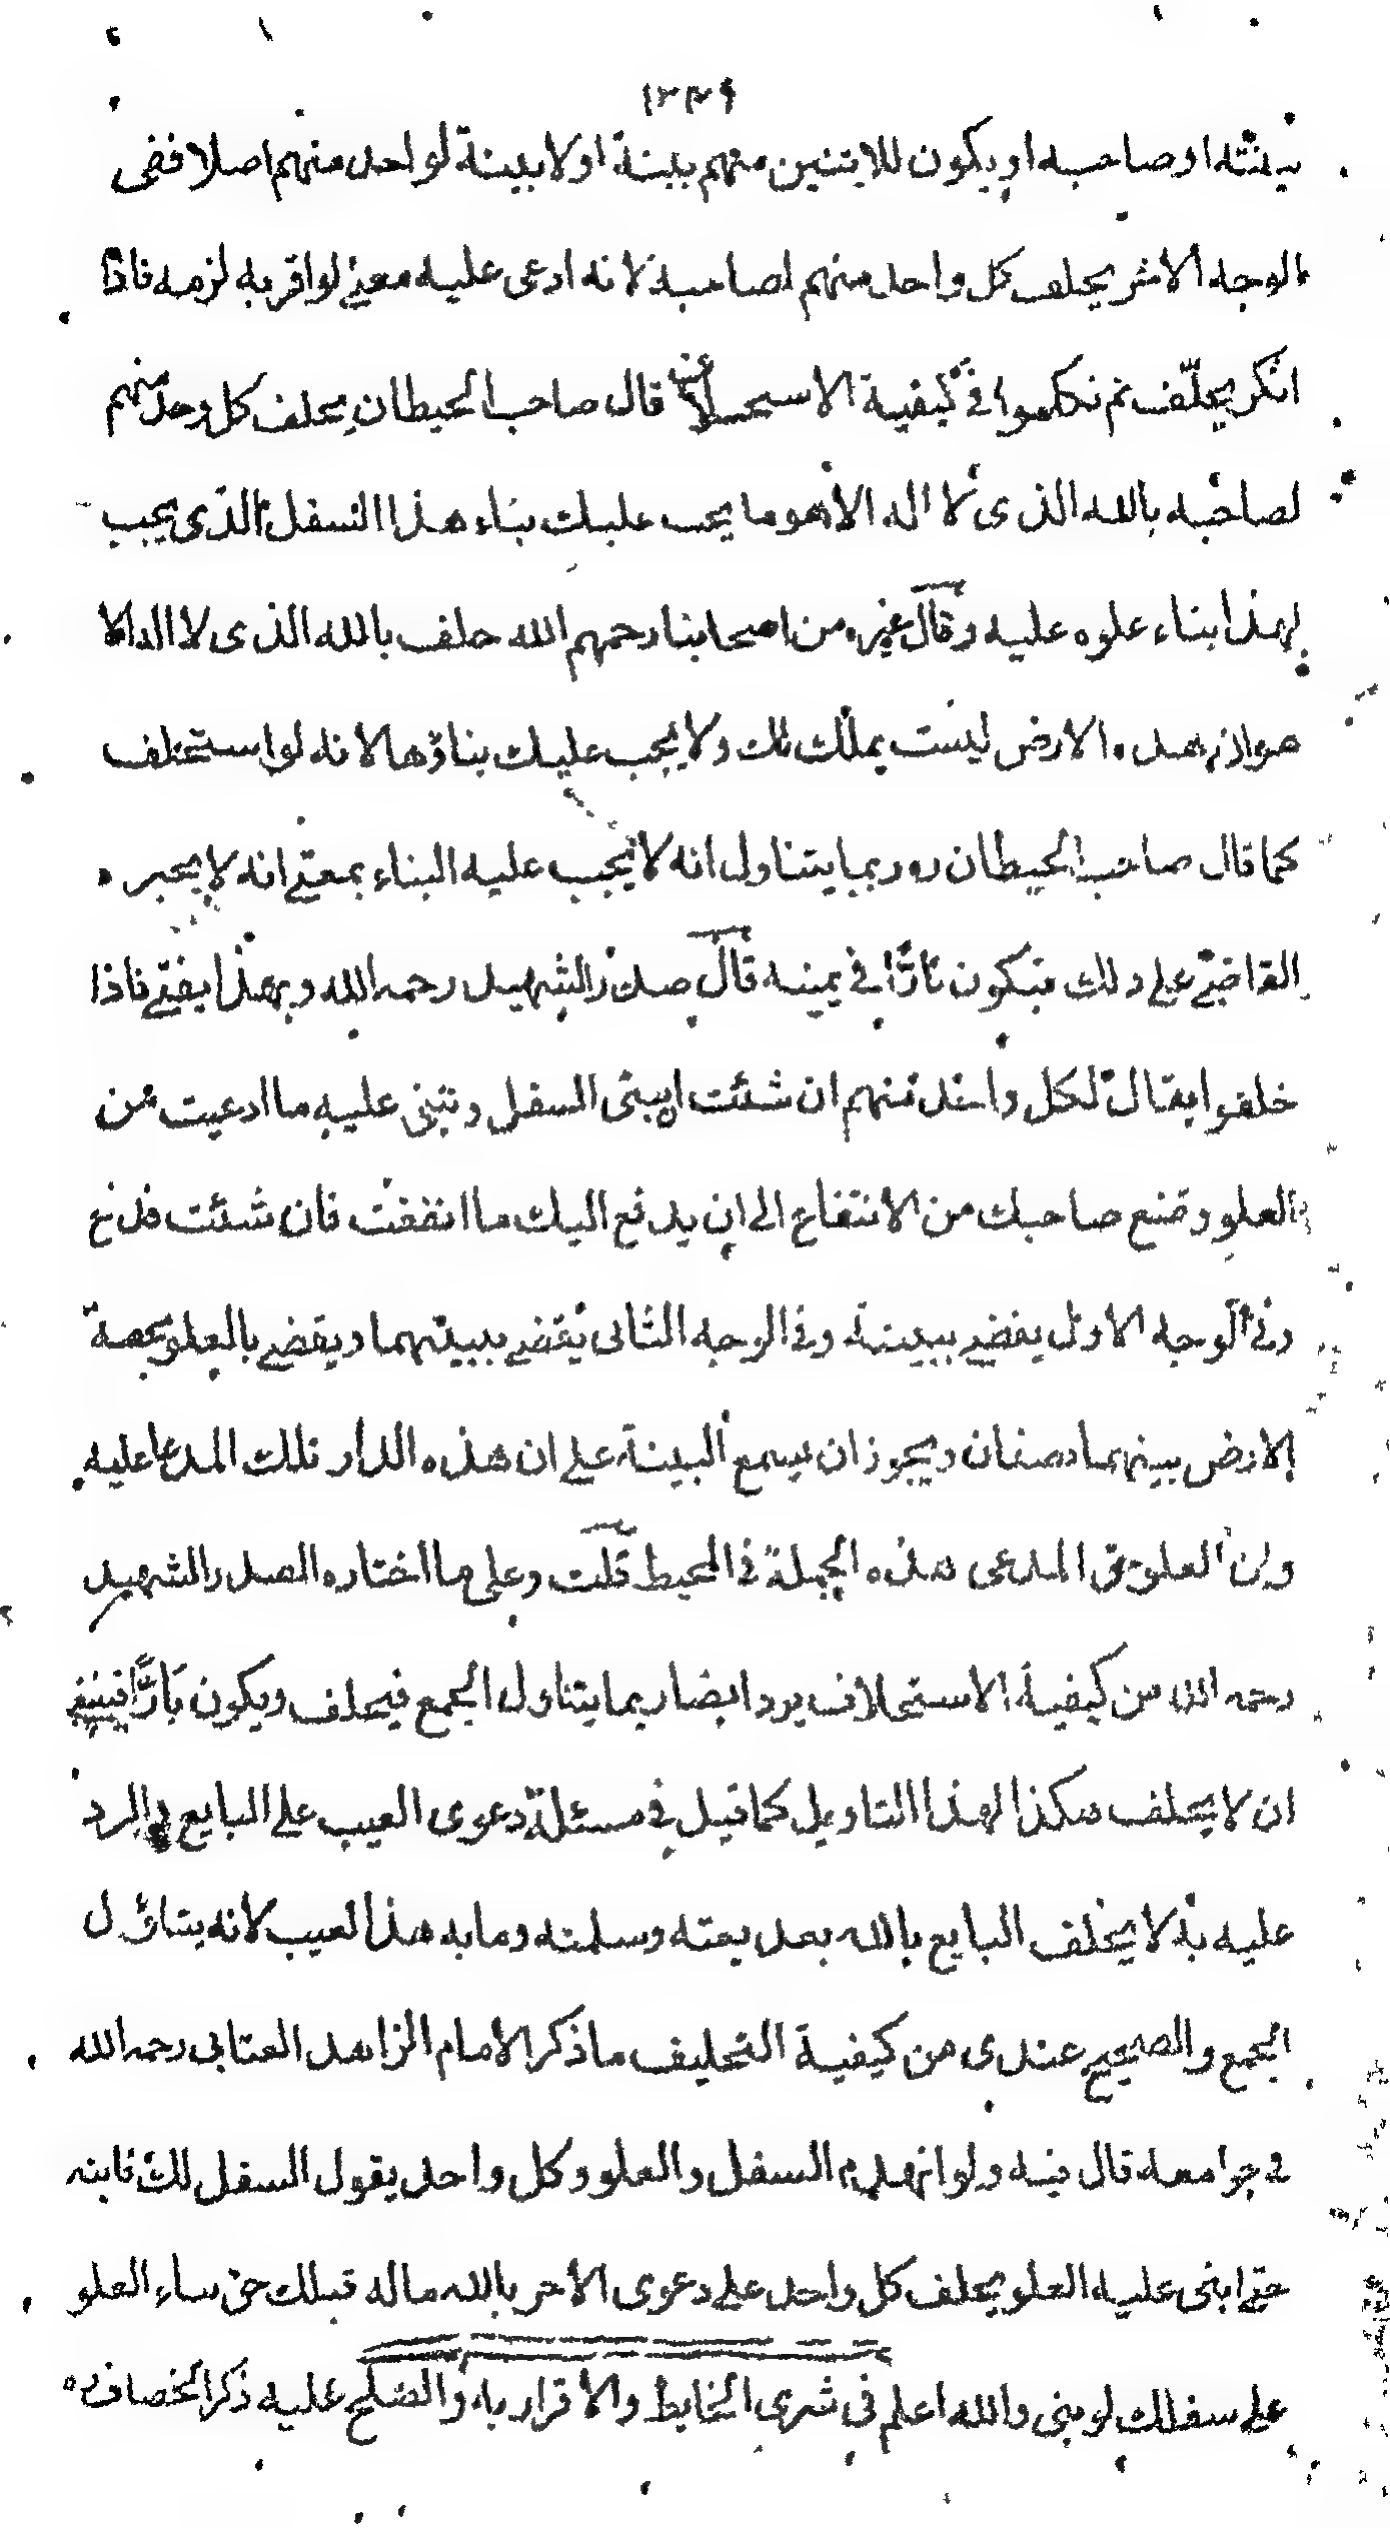 ١٣٤٩
بينته او صاحبه او يكون للاثنين منهم بينة او لا بينة لواحد منهم اصلا ففى
الوجه الاخر يحلف كل واحد منهم لصاحبه لانه ادعى عليه معنى لو اقر به لزمه فاذا
انكر يحلّف ثم تكلموا فى كيفية الاستحلاف قال صاحب الحيطان يحلف كل واحد منهم
لصاحبه بالله الذى لا اله الا هو ما يجب عليك بناء هذا السفل الذى يجب
لهذا بناء علوه عليه وقال غيره من اصحابنا رحمهم الله حلف بالله الذى لا اله الا
هو ان هذه الارض ليست بملك لك ولا يجب عليك بناؤها لانه لو استحلف
كما قال صاحب الحيطان ره ربما يتناول انه لا يجب عليه البناء بمعنى انه لا يجبر
القاضى على ذلك فيكون بارًّا فى يمينه قال صدر الشهيد رحمه الله وبهذا يفتى فاذا
حلفوا يقال لكل واحد منهم ان شئت ابنى السفل وتبنى عليه ما ادعيت من
العلو وتمنع صاحبك من الانتفاع الى ان يدفع اليك ما انفقت فان شئت فدع
وفى الوجه الاول يقضى ببينة وفى الوجه الثانى يقضى ببينتهما ويقضى بالعلو بحصة
الارض بينهما نصفان ويجوز ان يسمع البينة على ان هذه الدار تلك المدعا عليه
وان العلو حق المدعى هذه الجملة فى المحيط قلت وعلى ما اختاره الصدر الشهيد
رحمه الله من كيفية الاستحلاف يرد ايضا ربما يتناول الجمع فيحلف ويكون بارًّا فينبغى
ان لا يحلف هكذا لهذا التاويل كما قيل فى مسئلة دعوى العيب على البايع والرد
عليه به لا يحلف البايع بالله بعد بعته وسلمته وما به هذا العيب لانه يتناول
الجمع والصحيح عندى من كيفية التحليف ما ذكر الامام الزاهد العتابى رحمه الله
فى جوامعه قال فيه ولو انهدم السفل والعلو وكل واحد يقول السفل لك فابنه
حتى ابنى عليه العلو يحلف كل واحد على دعوى الاخر بالله ماله قبلك حق بناء العلو
على سفلك لو بنى والله اعلم فى شرى الحايط والاقرار به والصلح عليه ذكر الخصاف ره